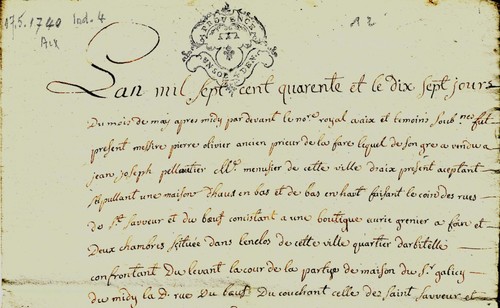 17.5.1740 Ind. 4 A 2
Aix
PROVENCE
Lan mil sept cent quarente et le dix sept jours
Du mois de may apres midy par devant le no.re royal a aix et temoins soub.nes fut
present messire pierre olivier ancien prieur de la fare lequel de son gre a vendu a
jean joseph pelleutier M.e menusier de cette ville d'aix present aceptant
stipullant une maison thaus en bas et de bas en haut faisant le coin des rues
de S.t sauveur et du bœuf concistant a une boutique ecurie grenier a foin et
Deux chambres scituée dans lenclos de cette ville quartier darbitelle
confrontant Du levant la cour de la partie de maison du S.r galicy
du midy la D. rue Du bœuf Du couchant celle de saint sauveur et